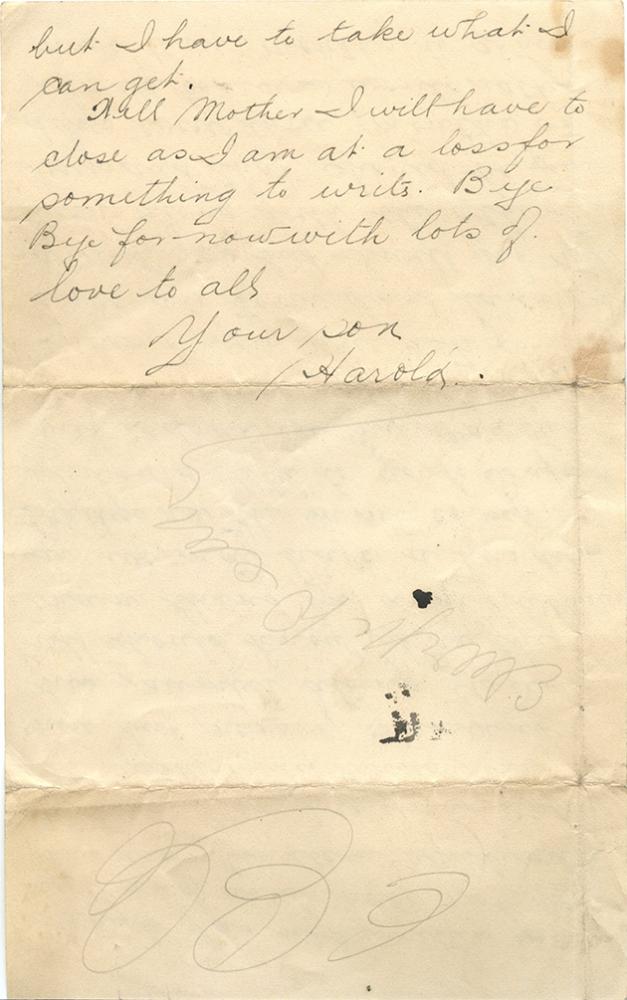 but I have to take what I
can get.
Well Mother I will have to
close as I am at a loss for
something to write. Bye
Bye for now with lots of
love to all
Your son
Harold.